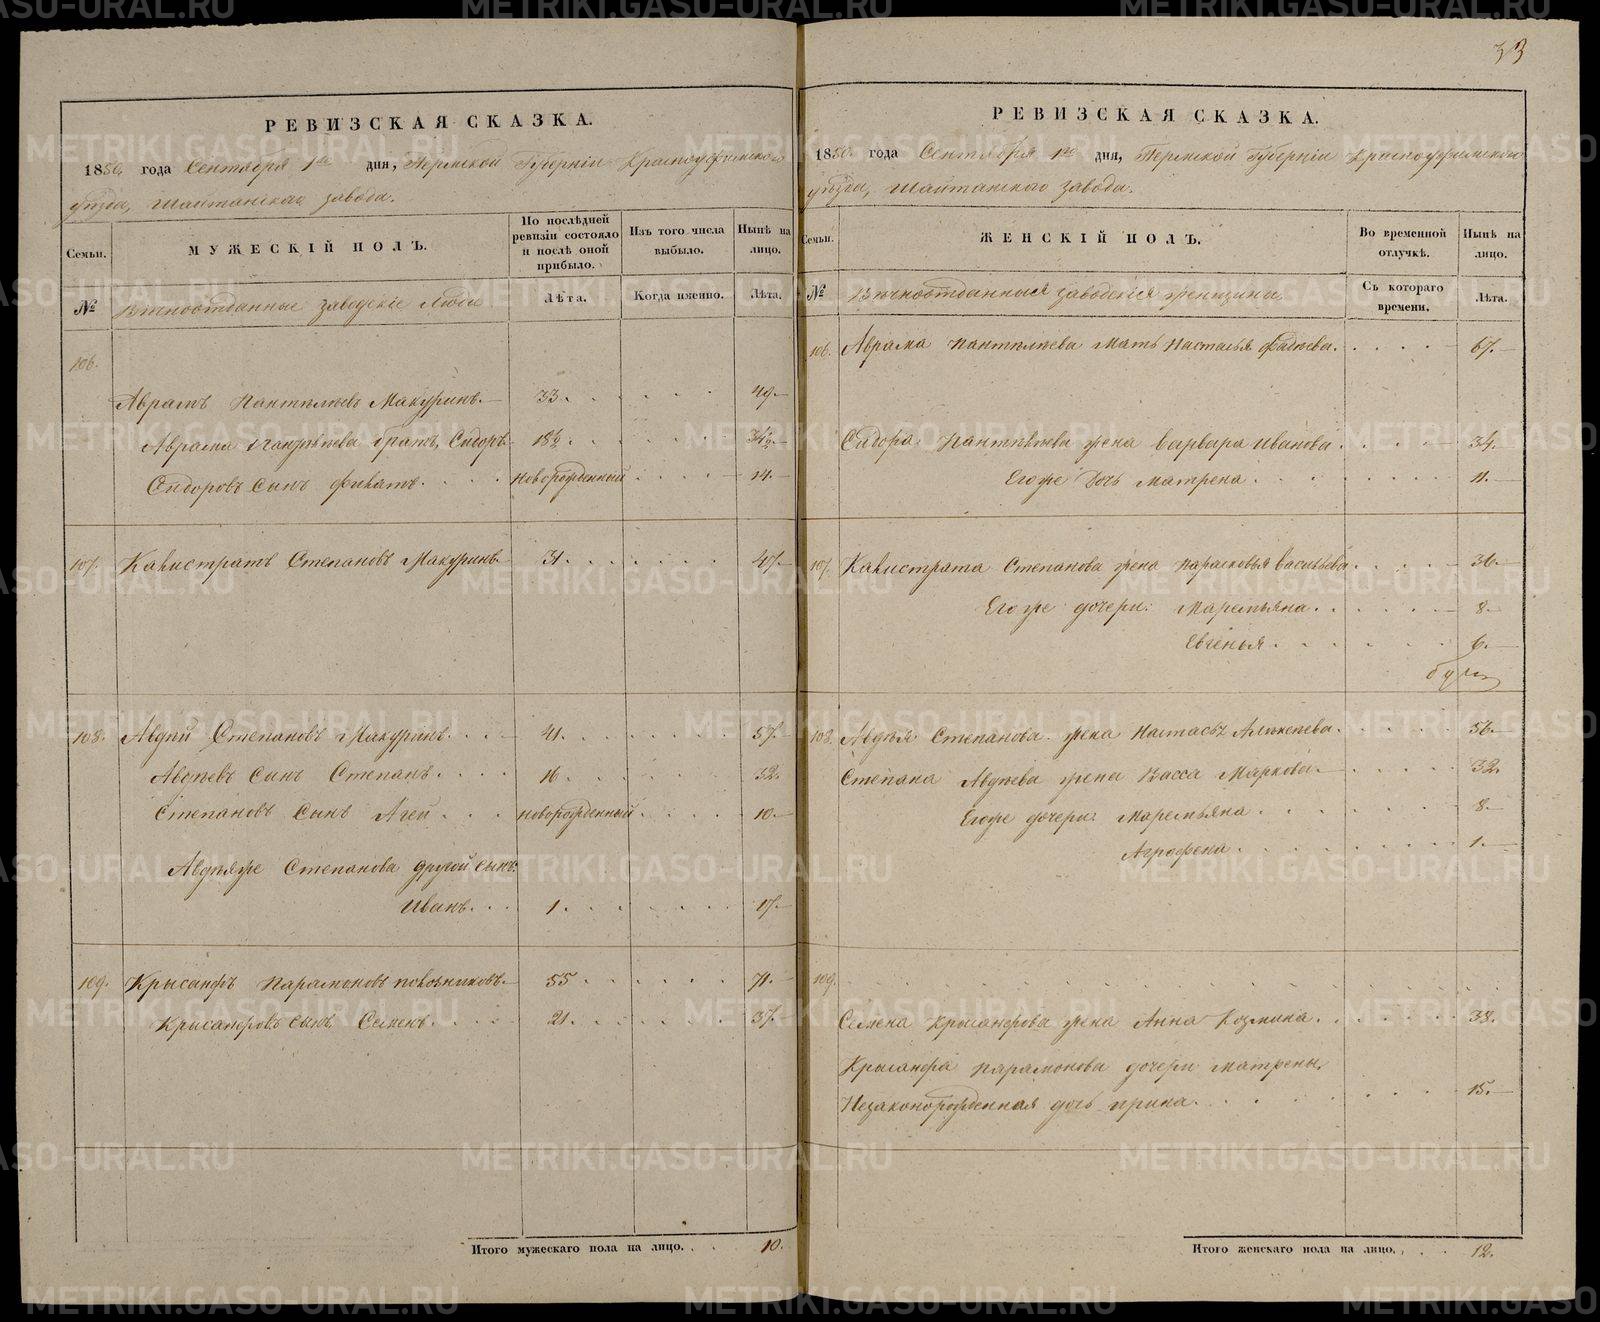 33
РЕВИЗСКАЯ СКАЗКА.
1850. года Сентября 1го дня, Пермской Губерніи Красноуфимского
уѣзда, Шайтанскаго завода.
Семьи.
МУЖЕСКІЙ ПОЛЪ.
По послѣдней ревизіи состояло и послѣ оной прибыло.
Изъ того числа выбыло.
Нынѣ на лицо.
№
Вѣчноотданные заводскіе Люди
Лѣта.
Когда именно.
Лѣта.
106.
Аврамъ Пантелѣевъ Макуринъ. 33. 49.
Аврама Пантелѣева братъ, Сидоръ 18½. 34½.
Сидоровъ сынъ Филатъ. новорожденный 14.
107. Калистратъ Степановъ Макуринъ. 31. 47.
108. Авдѣй Степановъ Макуринъ. 41. 57.
Авдѣевъ сынъ Степанъ. 16. 32.
Степановъ сынъ Агей новорожденный 10.
Авдѣя же Степанова другой сынъ
Иванъ. 1. 17.
109. Крысанфъ Парамоновъ 55. 71.
Крисанфовъ сынъ Семенъ. 21. 37.
Итого мужескаго пола на лицо. 10.
РЕВИЗСКАЯ СКАЗКА.
1850. года Сентября 1го дня, Пермской Губерніи Красноуфимского
уѣзда, Шайтанского завода.
Семьи.
ЖЕНСКІЙ ПОЛЪ.
Во временной отлучкѣ.
Нынѣ на лицо.
№
Вѣчноотданныя заводскія женщины.
Съ котораго времени.
Лѣта.
106. Аврама Пантелѣева мать Настасья Фадѣева. 67.
Сидора Пантелѣева жена Варвара Иванова. 34.
Его же дочь Матрена 11.
107. Калистрата Степанова жена Парасковья Васильева 36.
Его же дочери: Маремьяна. 8.
Евгенья. 6.
108. Авдѣя Степанова жена Настасья Алексѣева. 56.
Степана Авдѣева жена Васса Маркова. 32.
Его же дочери: Маремьяна 8.
Аграфена. 1.
109.
Семена Крысанфова жена Анна Козмина. 38.
Крысанфа Парамонова дочери Матрены,
Незаконорожденная дочь Ирина. 15.
Итого женскаго пола на лицо. 12.
METRIKI.GASO-URAL.RU